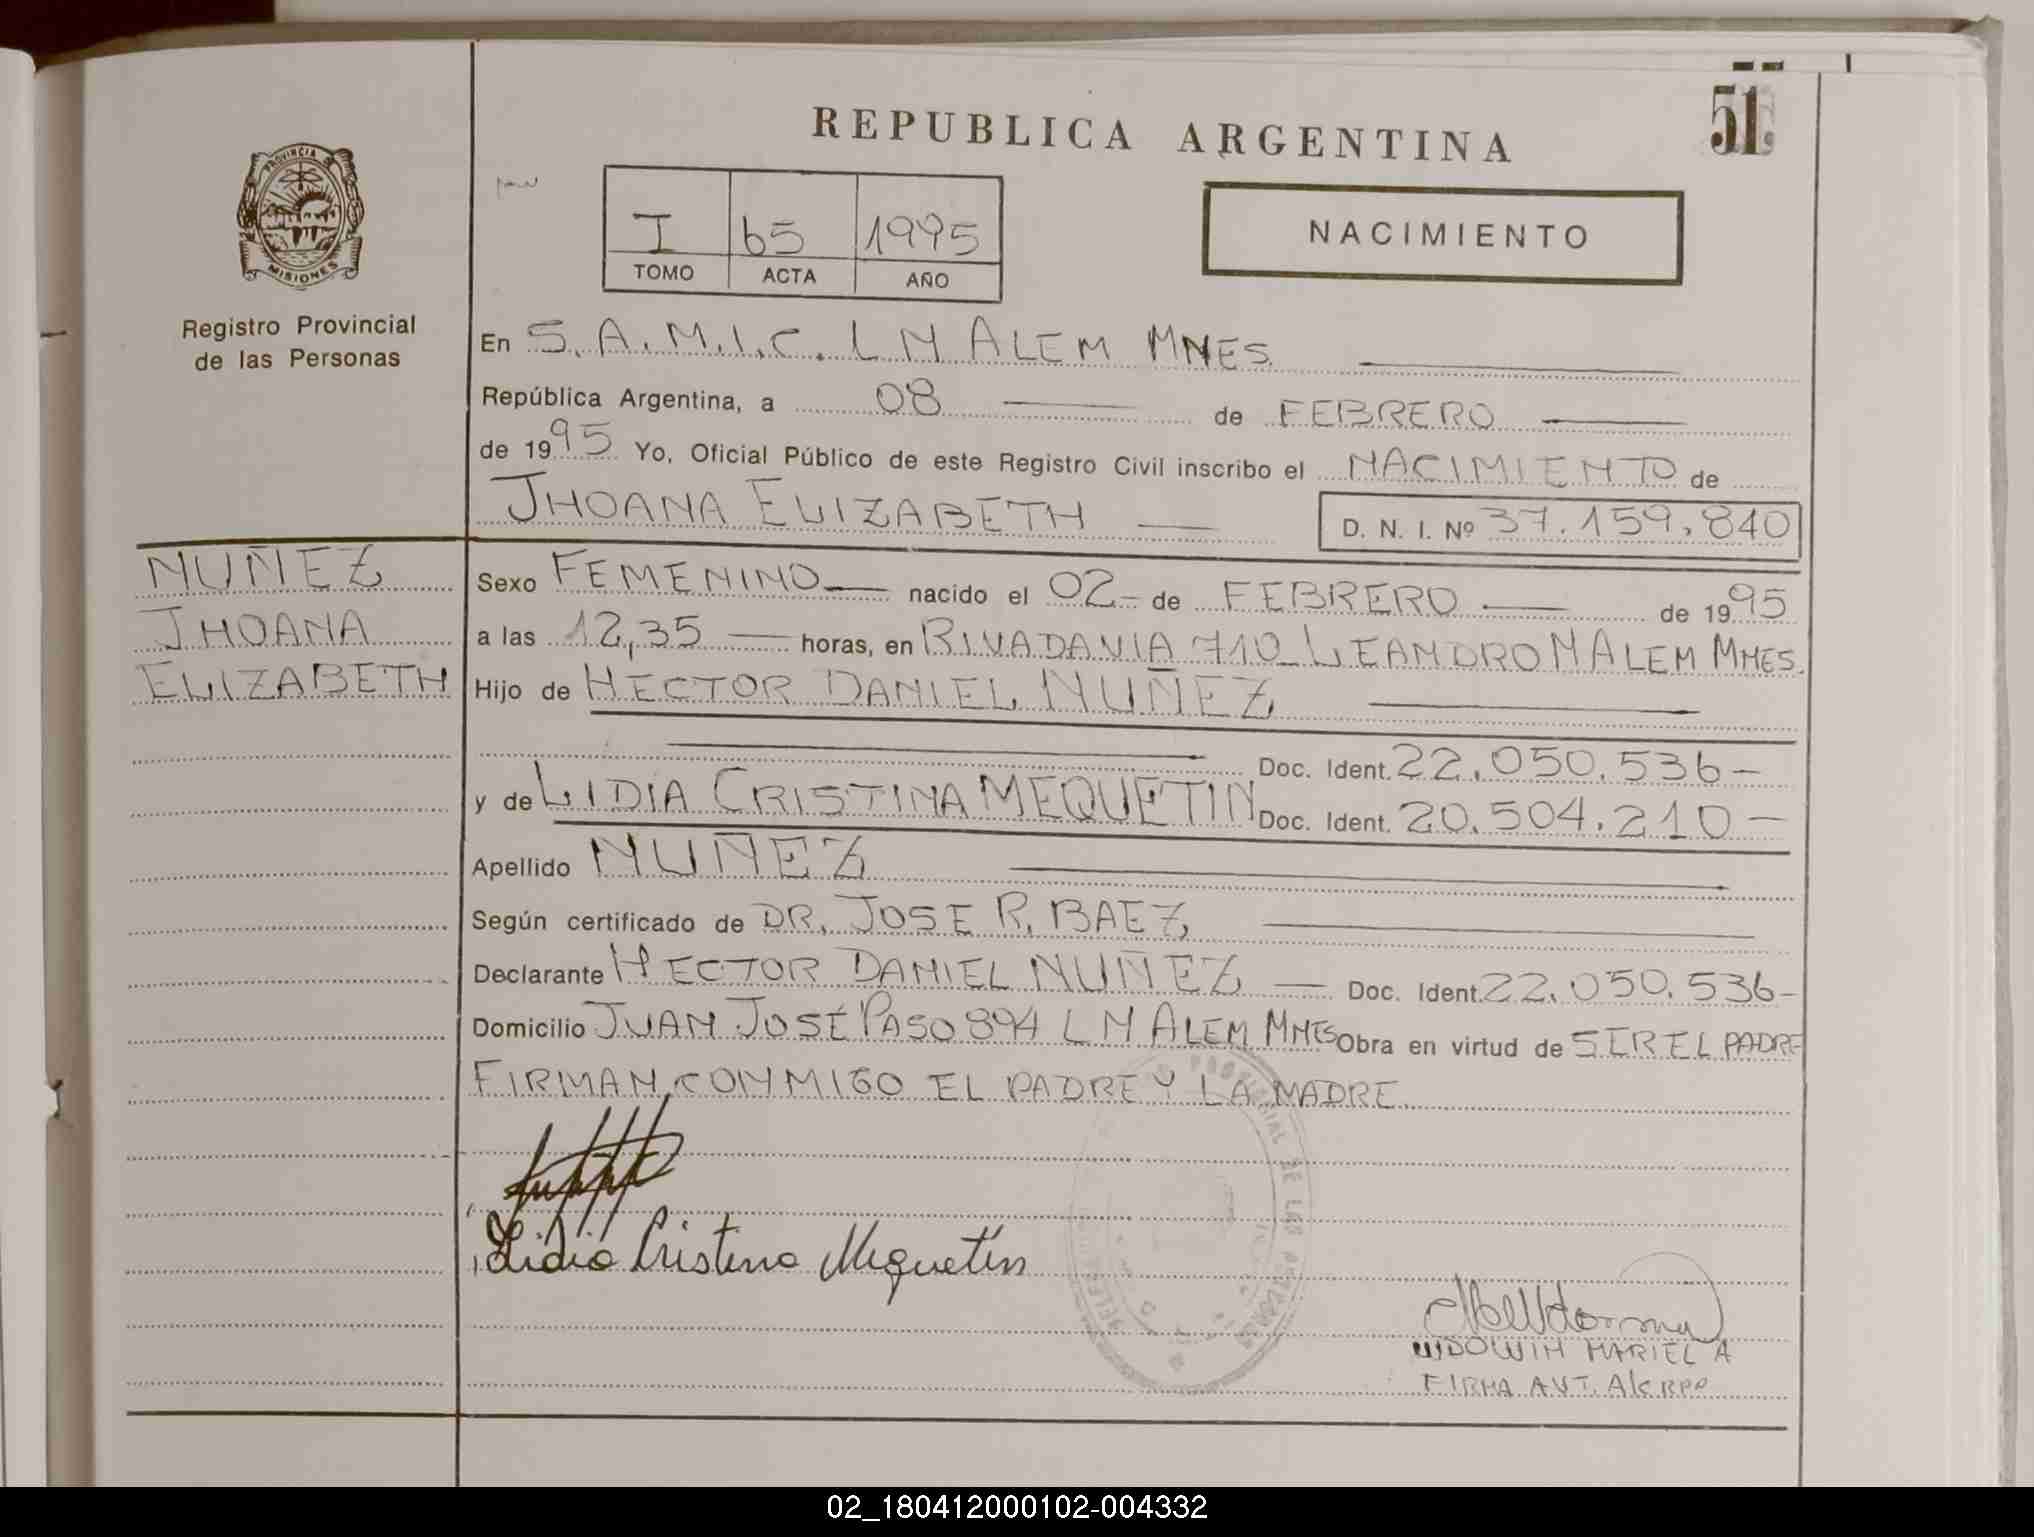 REPUBLICA ARGENTINA
51
PROVINCIA DE
MISIONES
Registro Provincial
de las Personas
I 65 1995
TOMO ACTA AÑO
NACIMIENTO
En S.A.M.I.C. L N ALEM MNES
República Argentina, a 08 de FEBRERO
de 1995 Yo, Oficial Público de este Registro Civil inscribo el NACIMIENTO de
JHOANA ELIZABETH D. N. I. Nº 37.159.840
NUÑEZ
JHOANA
ELIZABETH
Sexo FEMENINO nacido el 02 de FEBRERO de 1995
a las 12,35 horas, en RIVADAVIA 710 LEANDRO N ALEM MNES.
Hijo de HECTOR DANIEL NUÑEZ
Doc. Ident. 22.050.536-
y de LIDIA CRISTINA MEQUETIN Doc. Ident. 20.504.210-
Apellido NUÑEZ
Según certificado de DR. JOSE R. BAEZ
Declarante HECTOR DANIEL NUÑEZ Doc. Ident. 22.050.536-
Domicilio JUAN JOSÉ PASO 894 L N ALEM MNES Obra en virtud de SER EL PADRE
FIRMAN CONMIGO EL PADRE Y LA MADRE
PROVINCIAL DE LAS PERSONAS
Lidia Cristina Mequetín
MARIEL A
FIRMA AUT.
02_180412000102-004332